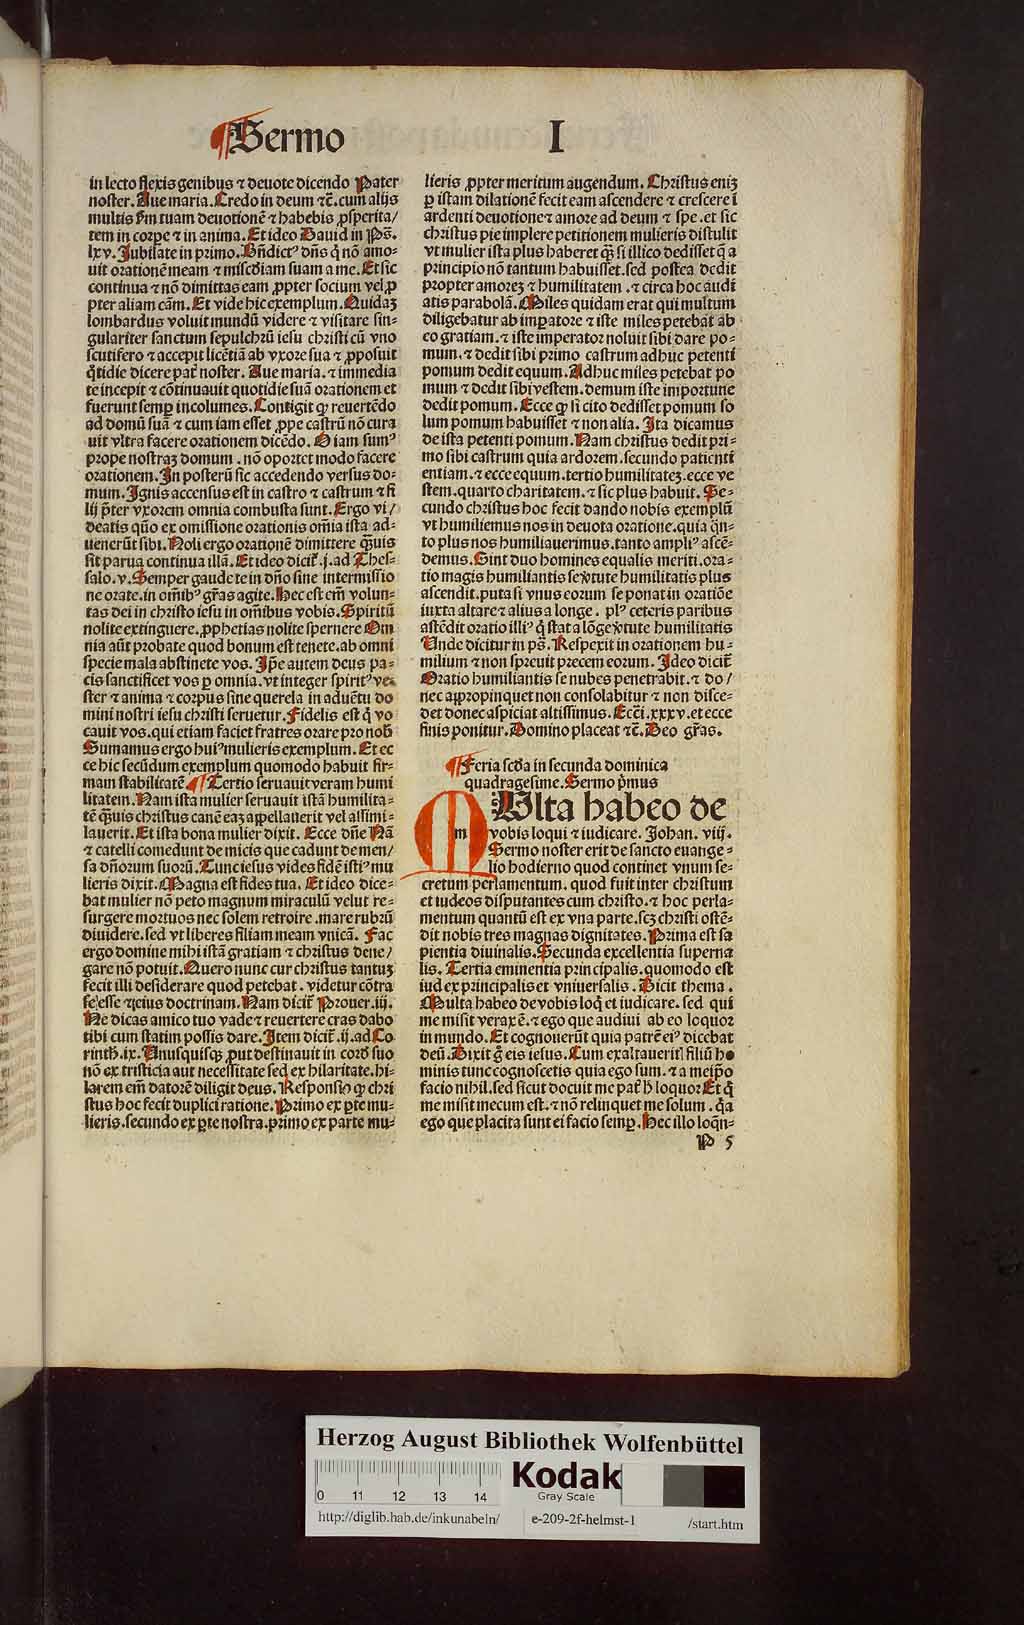 ¶Sermo I
in lecto flexis genibus ⁊ deuote dicendo Pater
noster. Aue maria. Credo in deum ⁊c̄. cum alijs
multis s̄m tuam deuotionē ⁊ habebis ꝓsperita/
tem in corpe ⁊ in anima. Et ideo Dauid in Ps̄.
lxv. Jubilate in primo. Bn̄dictꝰ dn̄s q̇ nō amo-
uit orationē meam ⁊ misc̄diam suam a me. Et sic
continua ⁊ nō dimittas eam ꝓpter socium vel ꝓ
pter aliam cām. Et vide hic exemplum. Quidaꝫ
lombardus voluit mundū videre ⁊ visitare sin-
gulariter sanctum sepulchrū iesu christi cū vno
scutifero ⁊ accepit licētiā ab vxore sua ⁊ ꝓposuit
q̇tidie dicere pat̄ noster. Aue maria. ⁊ immedia
te incepit ⁊ cōtinuauit quotidie suā orationem et
fuerunt semp̲ incolumes. Contigit ꝙ reuertēdo
ad domū suā ⁊ cum iam esset ꝓpe castrū nō cura
uit vltra facere orationem dicēdo. O iam sumꝰ
prope nostraꝫ domum. nō oportet modo facere
orationem. In posterū sic accedendo versus do-
mum. Ignis accensus est in castro ⁊ castrum ⁊ fi
lij p̄ter vxorem omnia combusta sunt. Ergo vi/
deatis quō ex omissione orationis om̄ia ista ad-
uenerūt sibi. Noli ergo orationē dimittere qᷓuis
sit parua continua illā. Et ideo dicit̄. j. ad Thes-
salo. v. Semper gaudete in dn̄o sine intermissio
ne orate. in om̄ibꝰ grās agite. Hec est em̄ volun-
tas dei in christo iesu in om̄ibus vobis. Spiritū
nolite extinguere. ꝓphetias nolite spernere Om
nia aūt probate quod bonum est tenete. ab omni
specie mala abstinete vos. Ip̄e autem deus pa-
cis sanctificet vos ꝑ omnia. vt integer spiritꝰ ve-
ster ⁊ anima ⁊ corpus sine querela in aduētu do
mini nostri iesu christi seruetur. Fidelis est q̇ vo
cauit vos. qui etiam faciet fratres orare pro nob̄
Sumamus ergo huiꝰ mulieris exemplum. Et ec
ce hic secūdum exemplum quomodo habuit fir-
mam stabilitatē ¶Tertio seruauit veram humi
litatem. Nam ista mulier seruauit istā humilita-
tē qᷓuis christus canē eaꝫ appellauerit vel assimi-
lauerit. Et ista bona mulier dixit. Ecce dn̄e Nā
⁊ catelli comedunt de micis que cadunt de men/
sa dn̄orum suorū. Tunc iesus vides fidē istiꝰ mu
lieris dixit. Magna est fides tua. Et ideo dice-
bat mulier nō peto magnum miraculū velut re-
surgere mortuos nec solem retroire. mare rubrū
diuidere. sed vt liberes filiam meam vnicā. Fac
ergo domine mihi istā gratiam ⁊ christus dene/
gare nō potuit. Quero nunc cur christus tantuꝫ
fecit illi desiderare quod petebat. videtur cōtra
se esse ⁊ eius doctrinam. Nam dicit̄ Prouer. iij.
Ne dicas amico tuo vade ⁊ reuertere cras dabo
tibi cum statim possis dare. Item dicit̄. ij. ad Co
rinth. ix. Vnusquisqꝫ ꝓut destinauit in cord̄ suo
nō ex tristicia aut necessitate sed ex hilaritate. hi-
larem em̄ datorē diligit deus. Responsio ꝙ chri
stus hoc fecit duplici ratione. Primo ex ꝑte mu-
lieris. secundo ex ꝑte nostra. primo ex parte mu-
lieris ꝓpter meritum augendum. Christus eniꝫ
ꝑ istam dilationē fecit eam ascendere ⁊ crescere ī
ardenti deuotione ⁊ amore ad deum ⁊ spe. et sic
christus pie implere petitionem mulieris distulit
vt mulier ista plus haberet qᷓꝫ si illico dedisset q̄ a
principio nō tantum habuisset. sed postea dedit
propter amoreꝫ ⁊ humilitatem. ⁊ circa hoc audi
atis parabolā. Miles quidam erat qui multum
diligebatur ab imꝑatore ⁊ iste miles petebat ab
eo gratiam. ⁊ iste imperator noluit sibi dare po-
mum. ⁊ dedit sibi primo castrum adhuc petenti
pomum dedit equum. Adhuc miles petebat po
mum ⁊ dedit sibi vestem. demum iste importune
dedit pomum. Ecce ꝙ si cito dedisset pomum so
lum pomum habuisset ⁊ non alia. Ita dicamus
de ista petenti pomum. Nam christus dedit pri-
mo sibi castrum quia ardorem. secundo patienti
entiam. ⁊ ecce equum. tertio humilitateꝫ. ecce ve
stem. quarto charitatem. ⁊ sic plus habuit. Se-
cundo christus hoc fecit dando nobis exemplū
vt humiliemus nos in deuota oratione. quia q̄n-
to plus nos humiliauerimus. tanto ampliꝰ ascē-
demus. Sint duo homines equalis meriti. ora-
tio magis humiliantis se v̓tute humilitatis plus
ascendit. puta si vnus eorum se ponat in oratiōe
iuxta altare ⁊ alius a longe. plꝰ ceteris paribus
astēdit oratio illiꝰ q̇ stat a lōge v̓tute humilitatis
Vnde dicitur in ps̄. Respexit in orationem hu-
milium ⁊ non spreuit precem eorum. Ideo dicit̄
Oratio humiliantis se nubes penetrabit. ⁊ do/
nec appropinquet non consolabitur ⁊ non disce-
det donec aspiciat altissimus. Ecc̄i. xxxv. et ecce
finis ponitur. Domino placeat ⁊c̄. Deo grās.
¶Feria scd̄a in secunda dominica
quadragesime. Sermo p̄mus
MUlta habeo de
m vobis loqui ⁊ iudicare. Johan. viij.
Sermo noster erit de sancto euange-
lio hodierno quod continet vnum se-
cretum perlamentum. quod fuit inter christum
et iudeos disputantes cum christo. ⁊ hoc perla-
mentum quantū est ex vna parte. scꝫ christi ostē-
dit nobis tres magnas dignitates. Prima est sa
pientia diuinalis. Secunda excellentia superna
lis. Tertia eminentia principalis. quomodo est
iudex principalis et vniuersalis. Dicit thema.
Multa habeo de vobis loq̇ et iudicare. sed qui
me misit verax ē. ⁊ ego que audiui ab eo loquor
in mundo. Et cognouerūt quia patrē eiꝰ dicebat
deū. Dixit g̊ eis iesus. Cum exaltaueritſ filiū ho
minis tunc cognoscetis quia ego sum. ⁊ a meip̄o
facio nihil. sed sicut docuit me pat̄ h̄ loquor Et q̇
me misit mecum est. ⁊ nō relinquet me solum. q̄a
ego que placita sunt ei facio semꝑ. Hec illo loq̄n-
P 5
Herzog August Bibliothek Wolfenbüttel
0 11 12 13 14
Kodak
Gray Scale
http://diglib.hab.de/inkunabeln/ e-209-2f-helmst-1 /start.htm